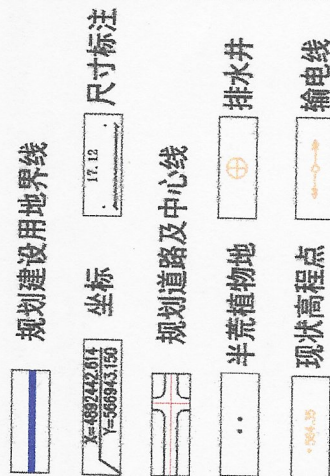 规划建设用地界线
X=4892442.614
Y=566943.150
坐标
17.12
尺寸标注
规划道路及中心线
半荒植物地
排水井
584.35
现状高程点
输电线